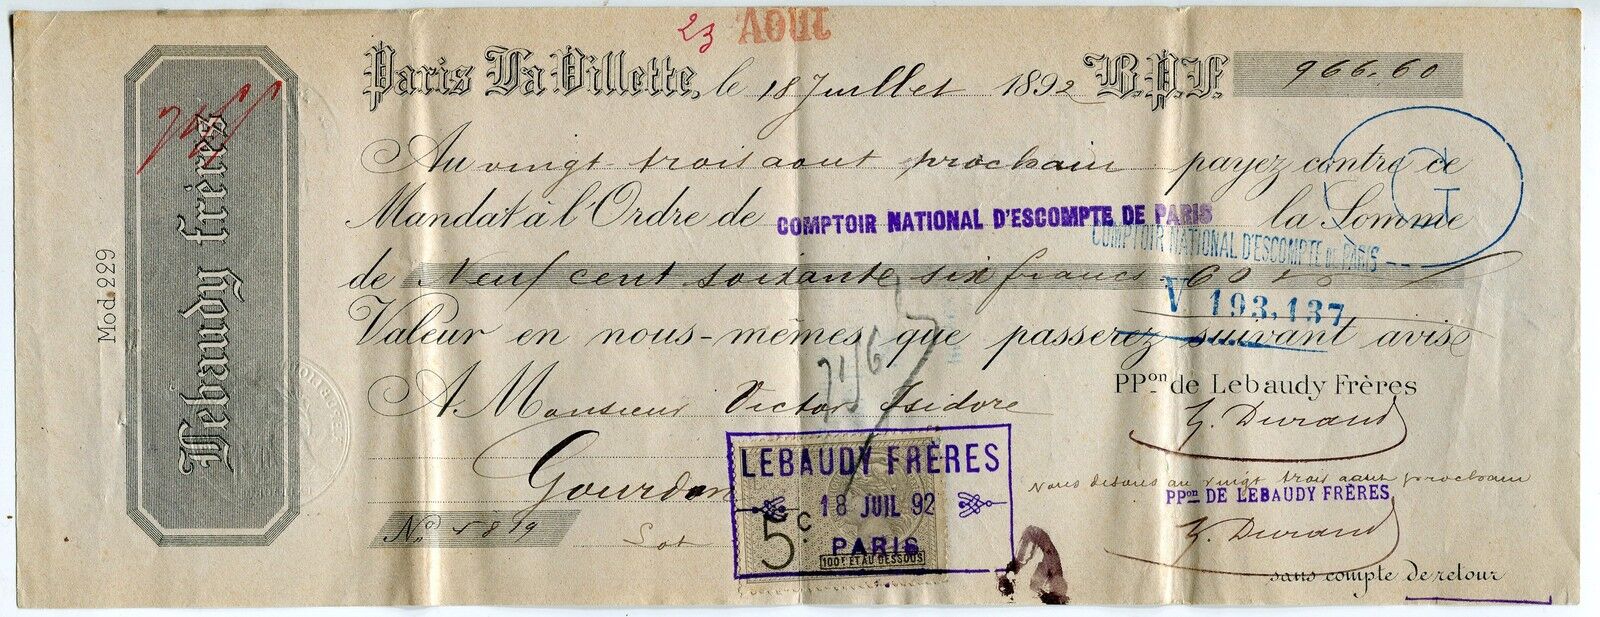 23 AOUT
Paris La Villette, le 18 Juillet 1892 B.P.F. 966.60
Au vingt trois aout prochain payez contre ce
Mandat à l'Ordre de COMPTOIR NATIONAL D'ESCOMPTE DE PARIS la Somme
COMPTOIR NATIONAL D'ESCOMPTE DE PARIS
de Neuf cent soixante six francs 60
V 193,137
Valeur en nous-mêmes que passerez suivant avis
PPon de Lebaudy Frères
A Monsieur Victor Isidore
Y. Durand
Gourdon
Lot
No. 5819
LEBAUDY FRÈRES
18 JUIL 92
PARIS
5c
100F ET AU DESSOUS
Nous disons au vingt trois aout prochain
PPon DE LEBAUDY FRÈRES
Y. Durand
sans compte de retour
Lebaudy frères
Mod. 229